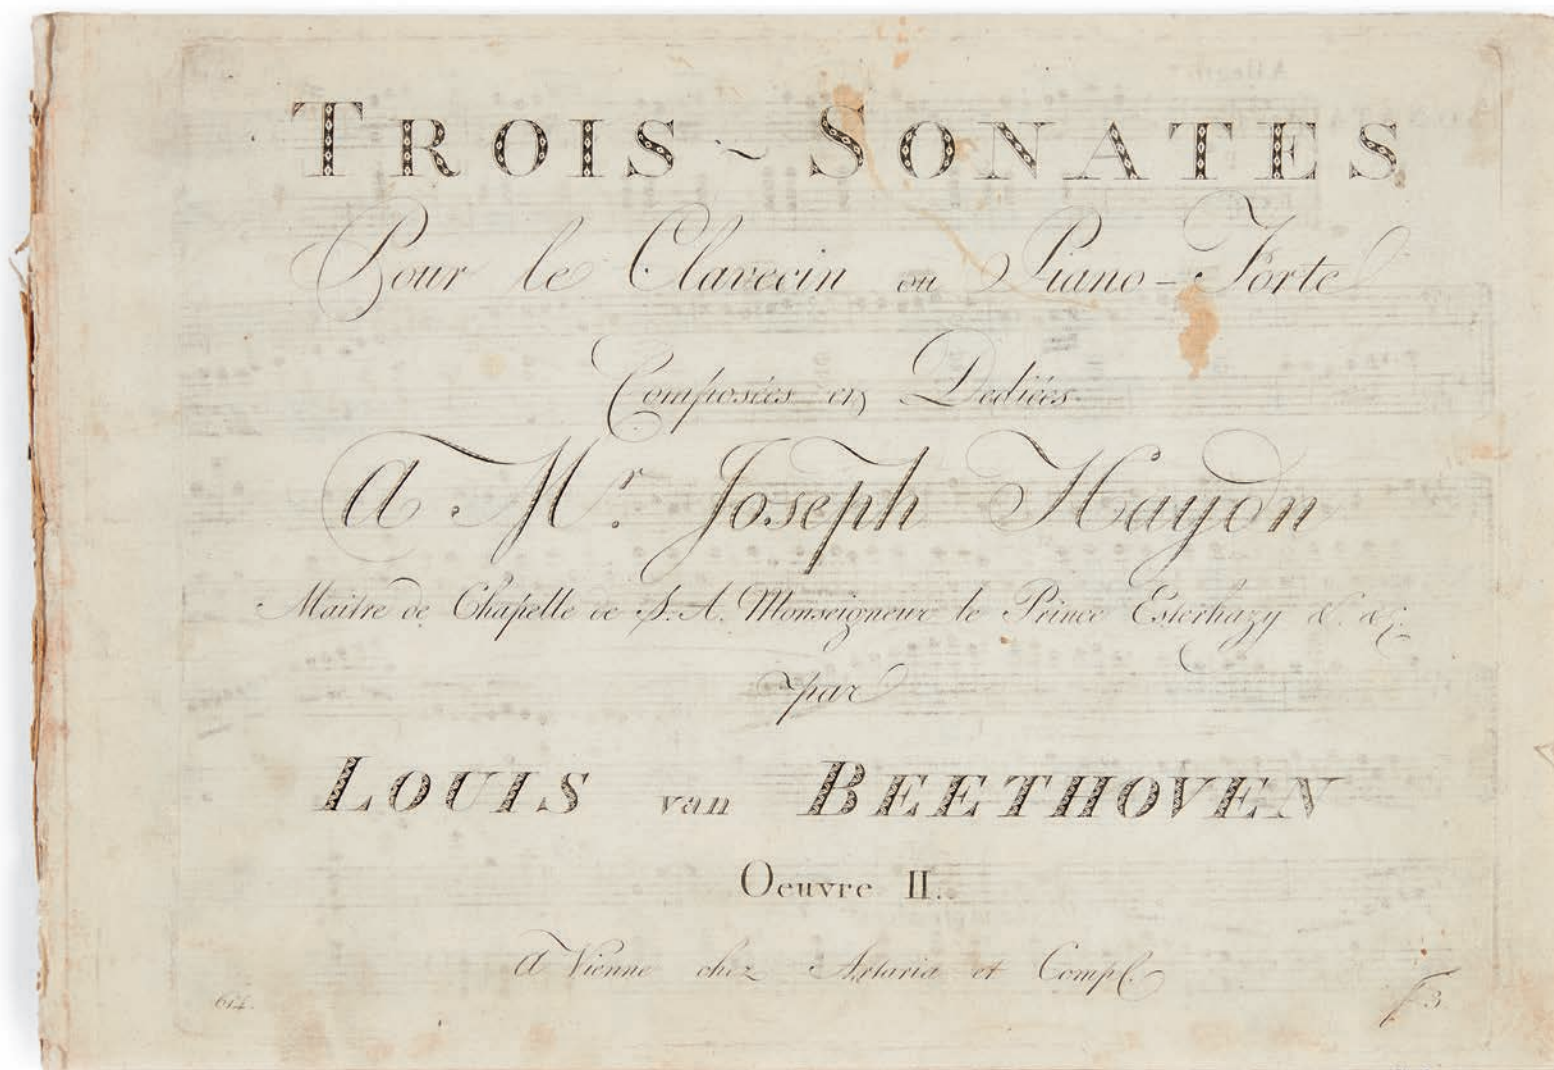 TROIS ~ SONATES
Pour le Clavecin ou Piano-Forte
Composées et Dediées
A Mr. Joseph Haydn
Maitre de Chapelle de S. A. Monseigneur le Prince Esterhazy &. &c.
par
LOUIS van BEETHOVEN
Oeuvre II.
A Vienne chez Artaria et Comp.
614.
f 3